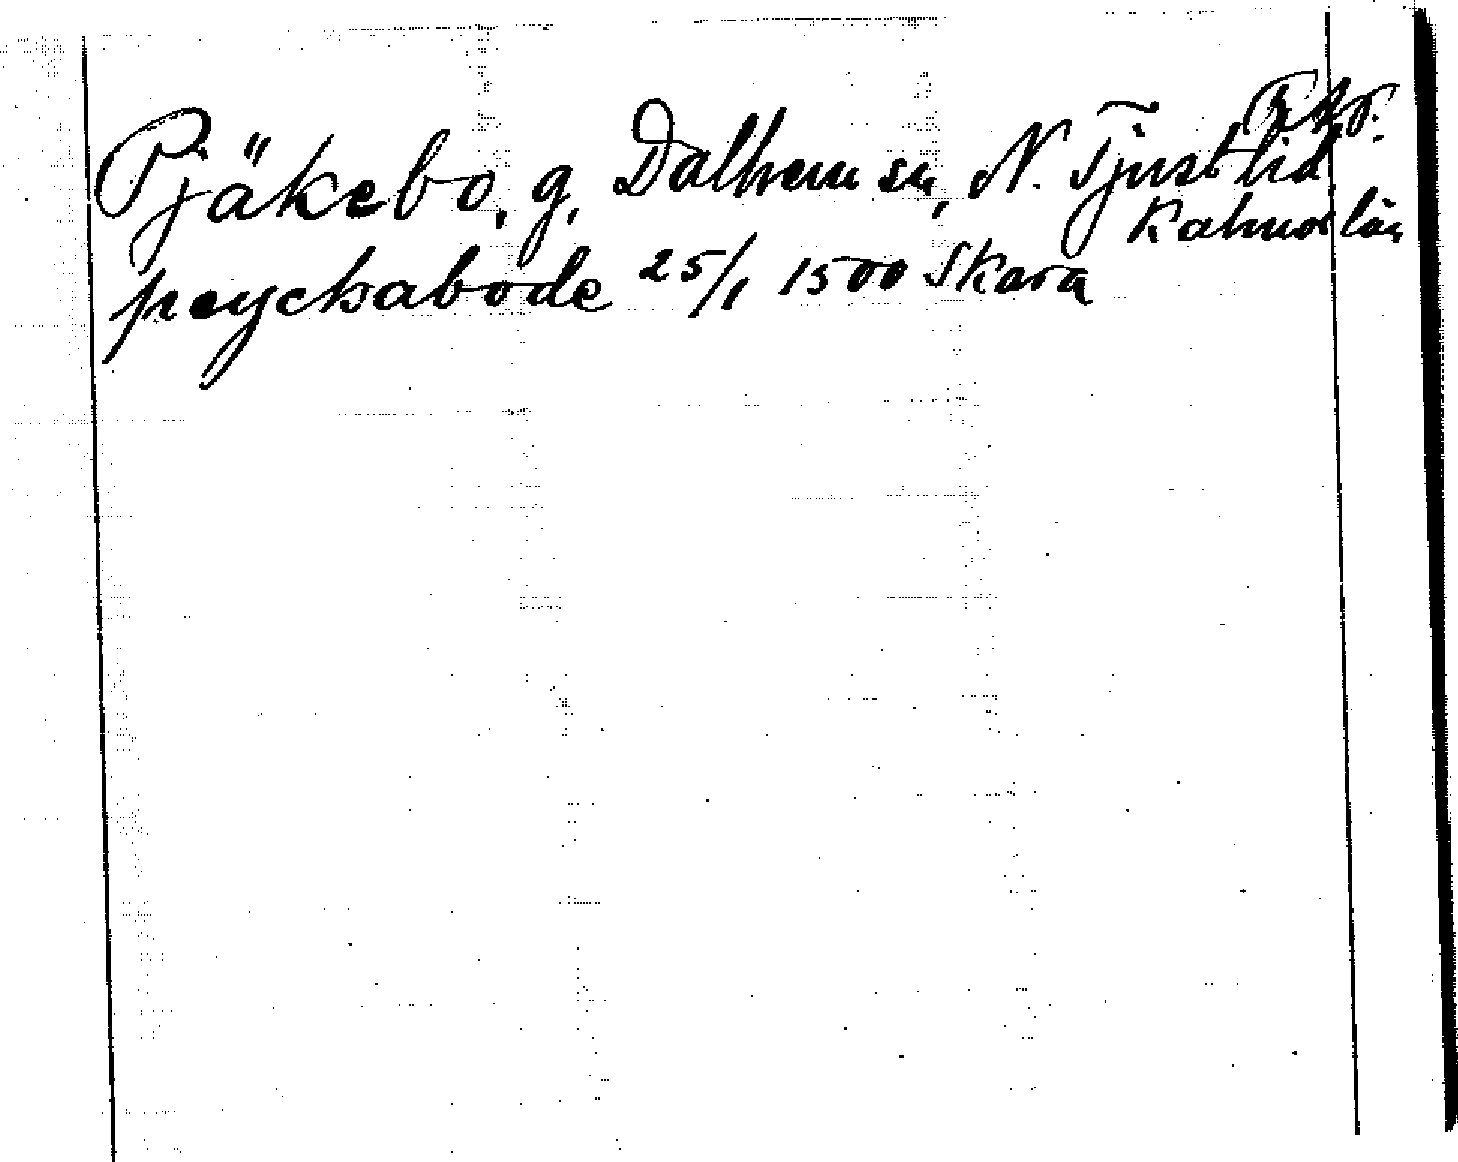 Pjäkebo, g, Dalhem sn, N. Tjust hd
Kalmar län
peyckabode 25/1 1500 Skara